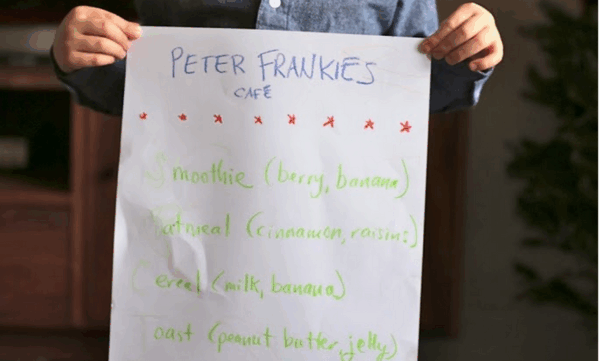 PETER FRANKIES
CAFE
Smoothie (berry, banana)
Oatmeal (cinnamon, raisins)
Cereal (milk, banana)
Toast (peanut butter, jelly)